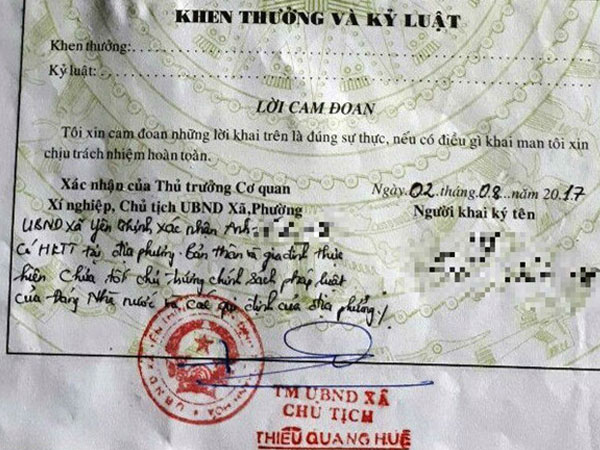 KHEN THƯỞNG VÀ KỶ LUẬT
Khen thưởng:
Kỷ luật:
LỜI CAM ĐOAN
Tôi xin cam đoan những lời khai trên là đúng sự thực, nếu có điều gì khai man tôi xin
chịu trách nhiệm hoàn toàn.
Xác nhận của Thủ trưởng Cơ quan
Xí nghiệp, Chủ tịch UBND Xã,Phường
Ngày 02 tháng 08 năm 2017
Người khai ký tên
UBND xã Yên Thịnh xác nhận Anh
Có HKTT tại địa phương. Bản thân và gia đình thực
hiện Chưa tốt chủ trương chính sách pháp luật
của Đảng Nhà nước và các quy định của địa phương/
TM UBND XÃ
CHỦ TỊCH
THIỀU QUANG HUẾ